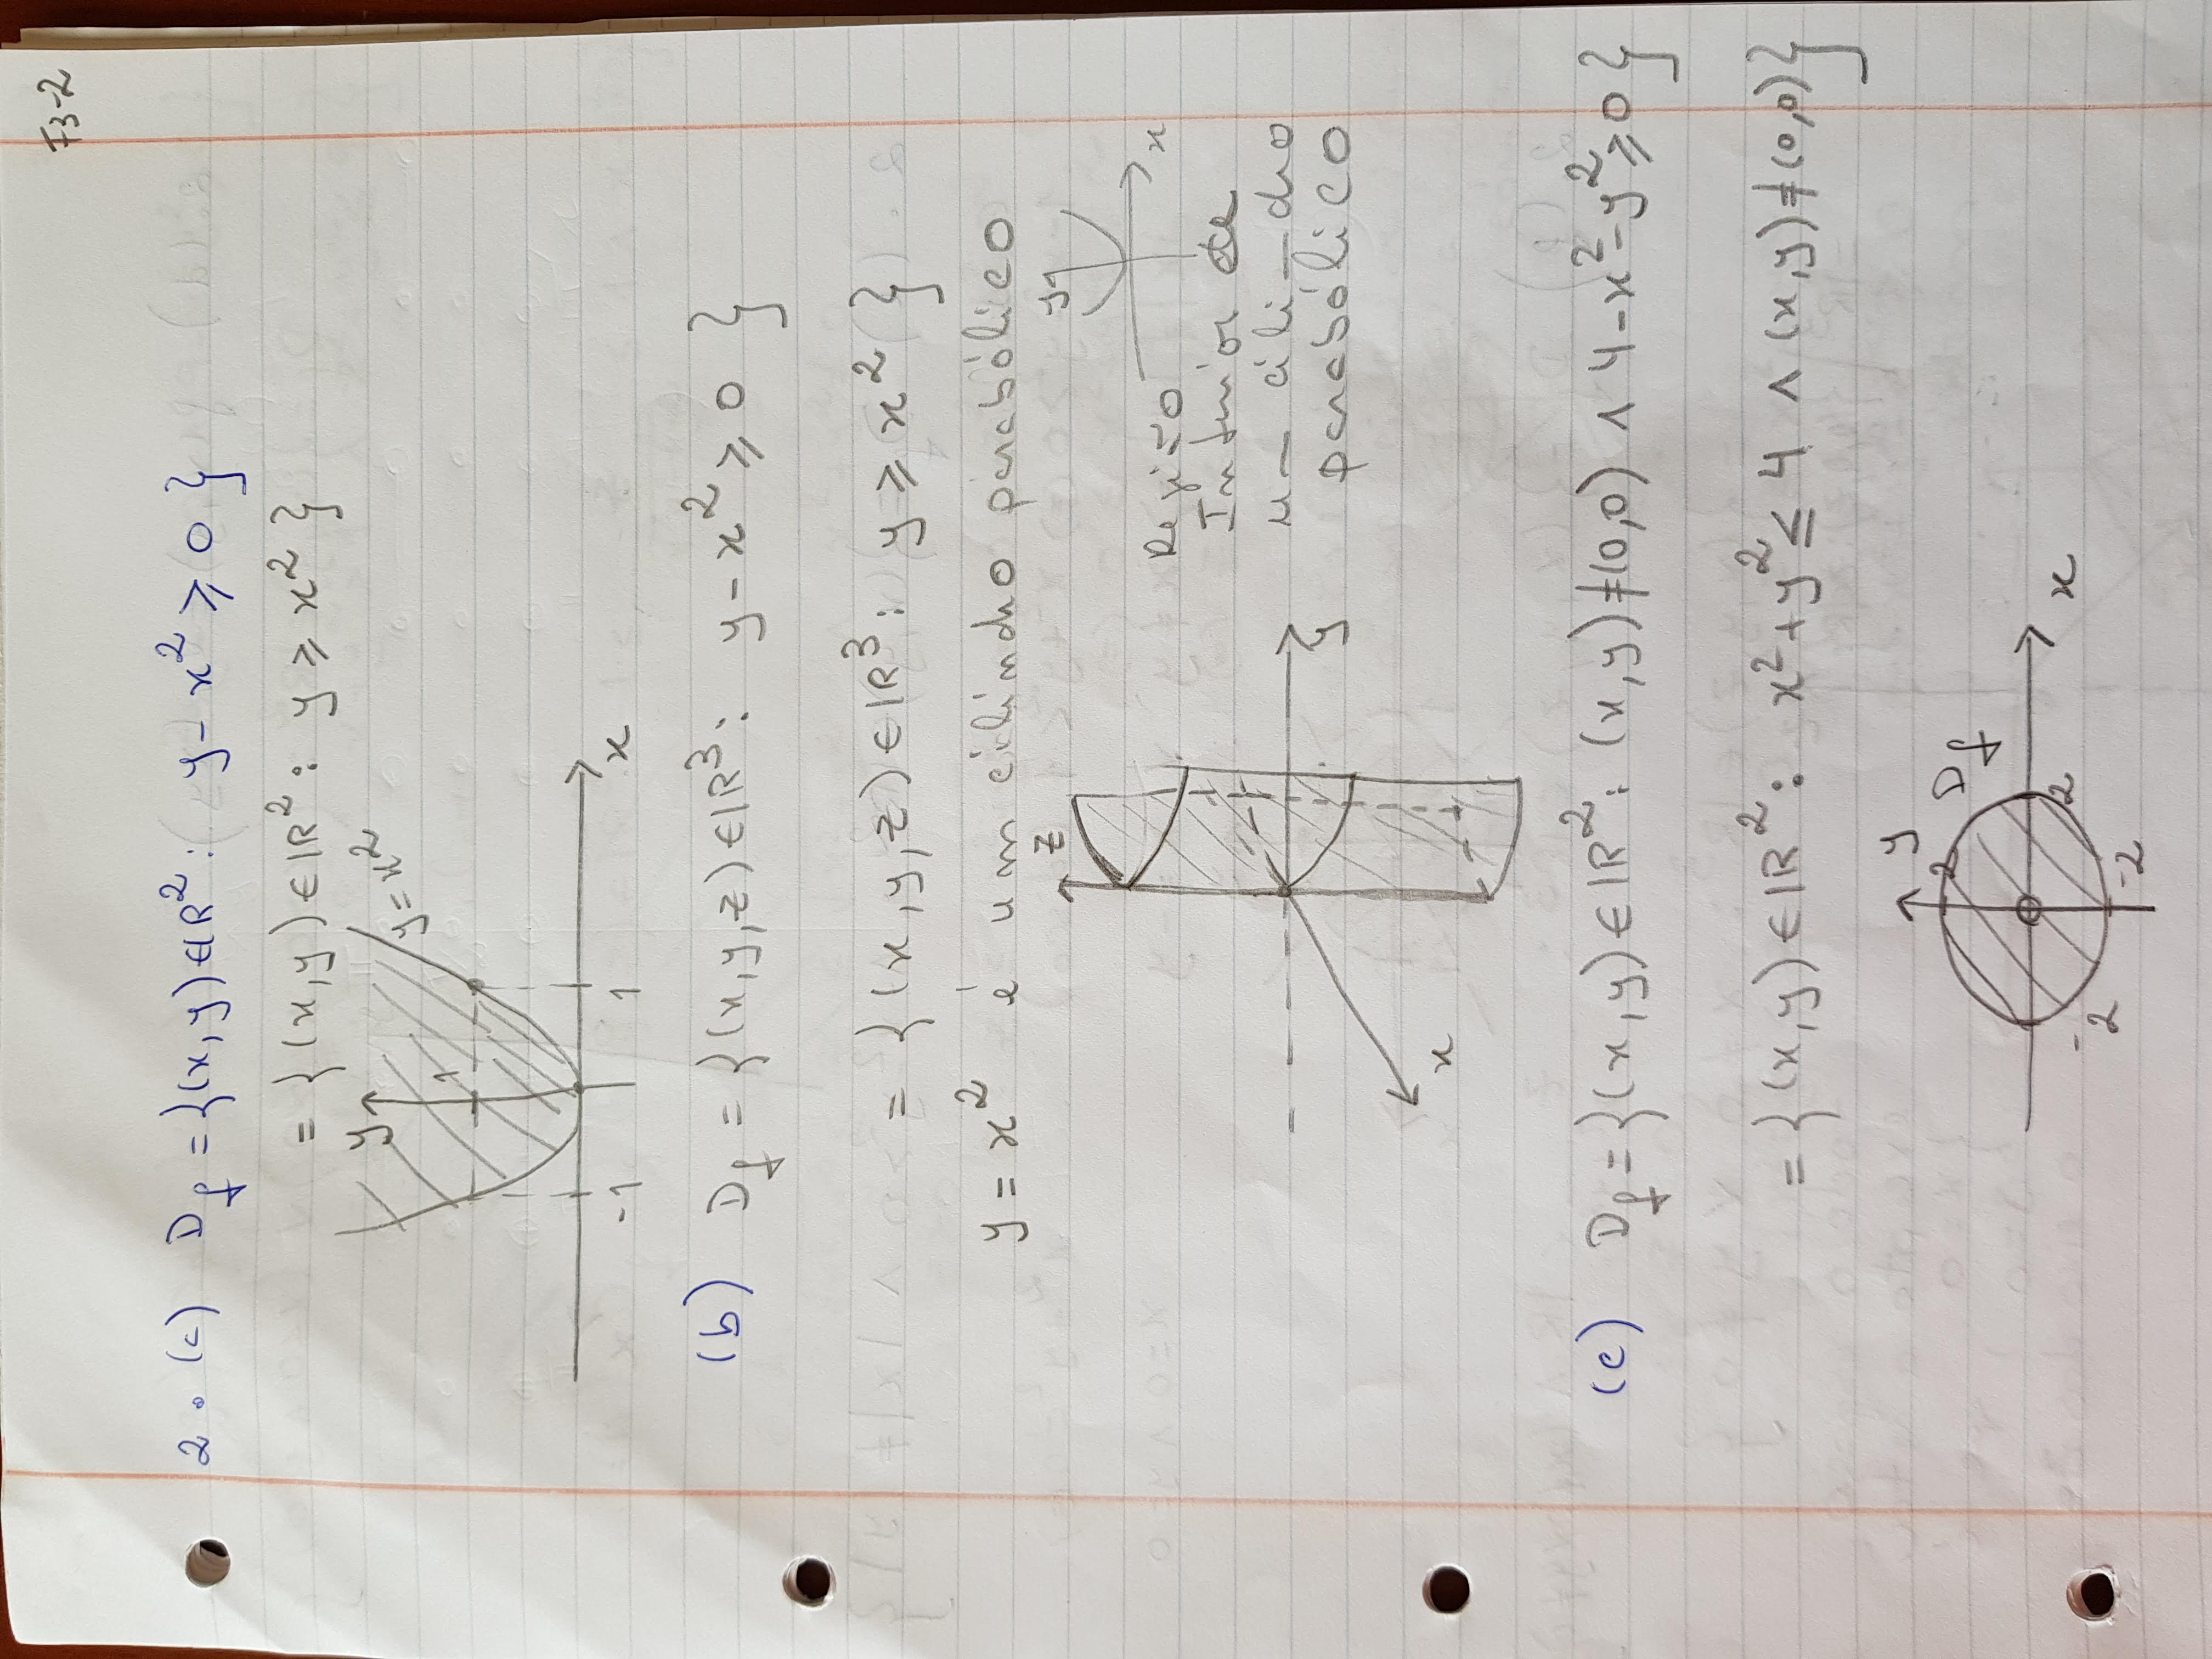 F3-2
2. (a) Df = {(x, y) ∈ ℝ²: y - x² ≥ 0}
= {(x, y) ∈ ℝ²: y ≥ x²}
y
y = x²
1
-1 1 x
(b) Df = {(x, y, z) ∈ ℝ³: y - x² ≥ 0}
= {(x, y, z) ∈ ℝ³: y ≥ x²}
y = x² é um cilindro parabólico
z
y
x
Região
Interior de
um cilindro
y
parabólico
x
(c) Df = {(x, y) ∈ ℝ²: (x, y) ≠ (0,0) ∧ 4 - x² - y² ≥ 0}
= {(x, y) ∈ ℝ²: x² + y² ≤ 4 ∧ (x, y) ≠ (0,0)}
y
2 Df
-2 2 x
-2